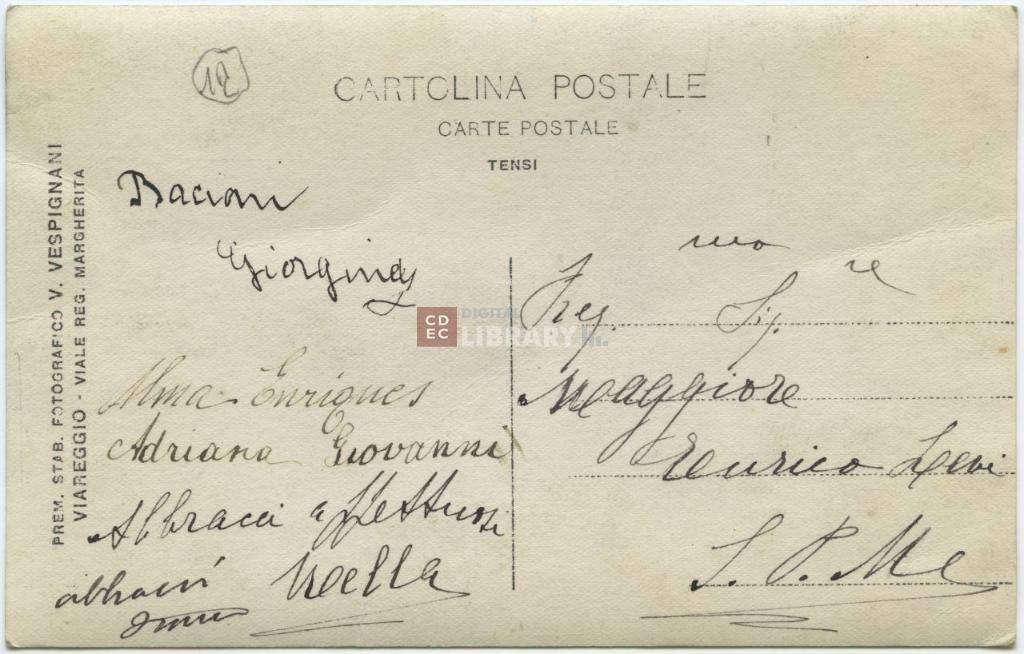 12
CARTOLINA POSTALE
CARTE POSTALE
TENSI
PREM. STAB. FOTOGRAFICO V. VESPIGNANI
VIAREGGIO - VIALE REG. MARGHERITA
Bacioni
Giorgina
CDEC DIGITAL LIBRARY
Alma Enriques
Adriana Giovanni
Abbracci affettuosi
Nella
abbracci
Preg.mo Sig.re
Maggiore
Enrico Levi
S. P. M.